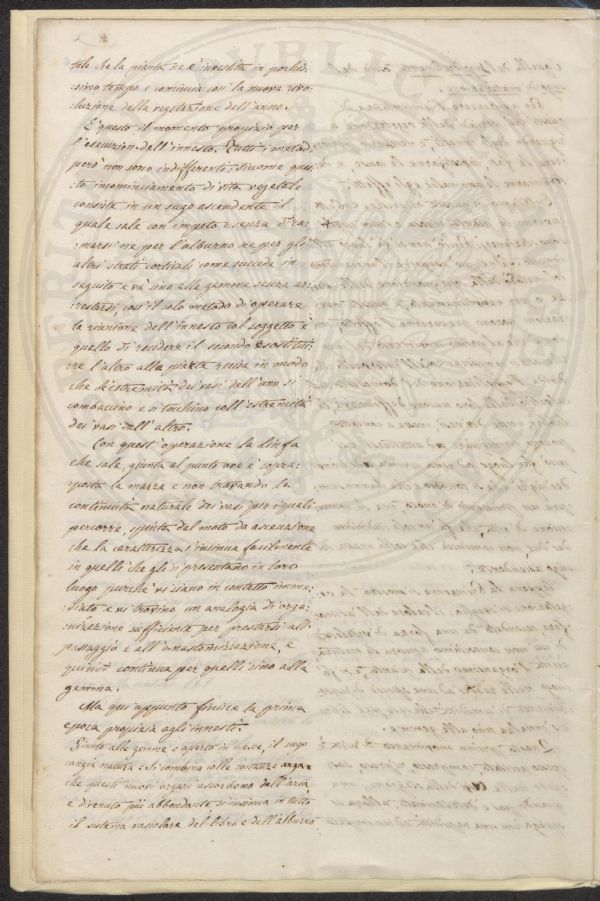 tale che la pianta ne è investita in pochis:
:simo tempo e comincia così la nuova rivo:
:luzione della vegetazione dell'anno.
E' questo il momento propizio per
l'esecuzion dell'innesto. Tutti i metodi
però non sono indifferenti; siccome que:
:sto incominciamento di vita vegetale
consiste in un sugo ascendente il
quale sale con impeto e senza dira:
:marsi ne per l'alburno ne per gli
altri strati corticali come succede in
seguito e và sino alle gemme senza ar:
:restarsi, così il solo metodo di operare
la riunione dell'innesto col soggetto è
quello di recidere il secondo e sostitui:
:re l'altro alla parte recisa in modo
che le estremità dei vasi dell'uno si
combacino e si tocchino coll'estremità
dei vasi dell'altro.
Con quest'operazione la linfa
che sale, giunta al punto ove è sopra:
:posta la marza e non trovando la
continuità naturale dei vasi per i quali
percorre, spinta dal moto di ascensione
che la caratterizza s'insinua facilmente
in quelli che gli si presentano in loro
luogo purchè vi siano in contatto imme:
:diato e vi trovino un analogia di orga:
:nizzazione sufficiente per prestarsi al
passaggio e all'anastomizzazione, e
quindi continua per quelli sino alla
gemma.
Ma qui appunto finisce la prima
epoca propizia agli innesti.
Giunto alle gemme e aperto in esse, il sugo
cangia natura: Si combina colle sostanze
che questi nuovi organi assorbono dall'aria
e divenuto più abbondante s'insinua in tutto
il sistema vascolare del libro e dell'alburno